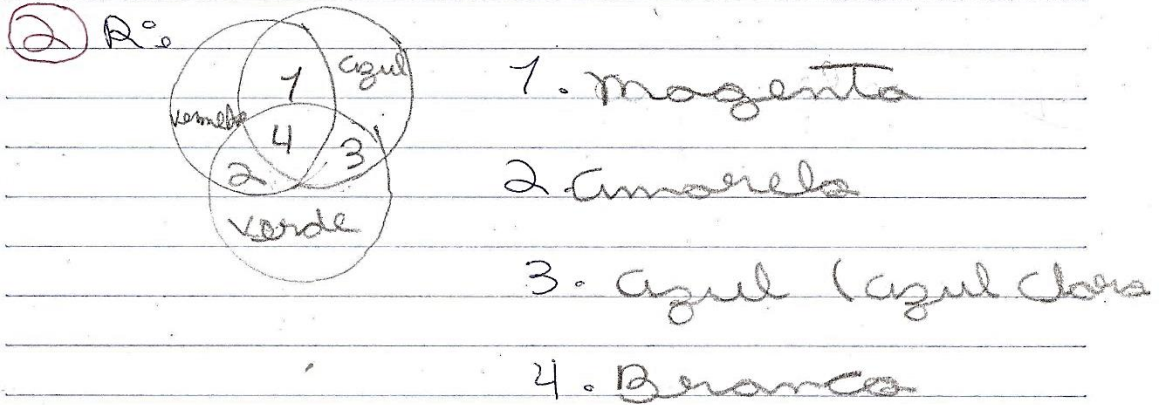 2 R:
azul
1
vermelho
4
3
2
verde
1. Magenta
2. amarelo
3. azul (azul claro
4. Branco